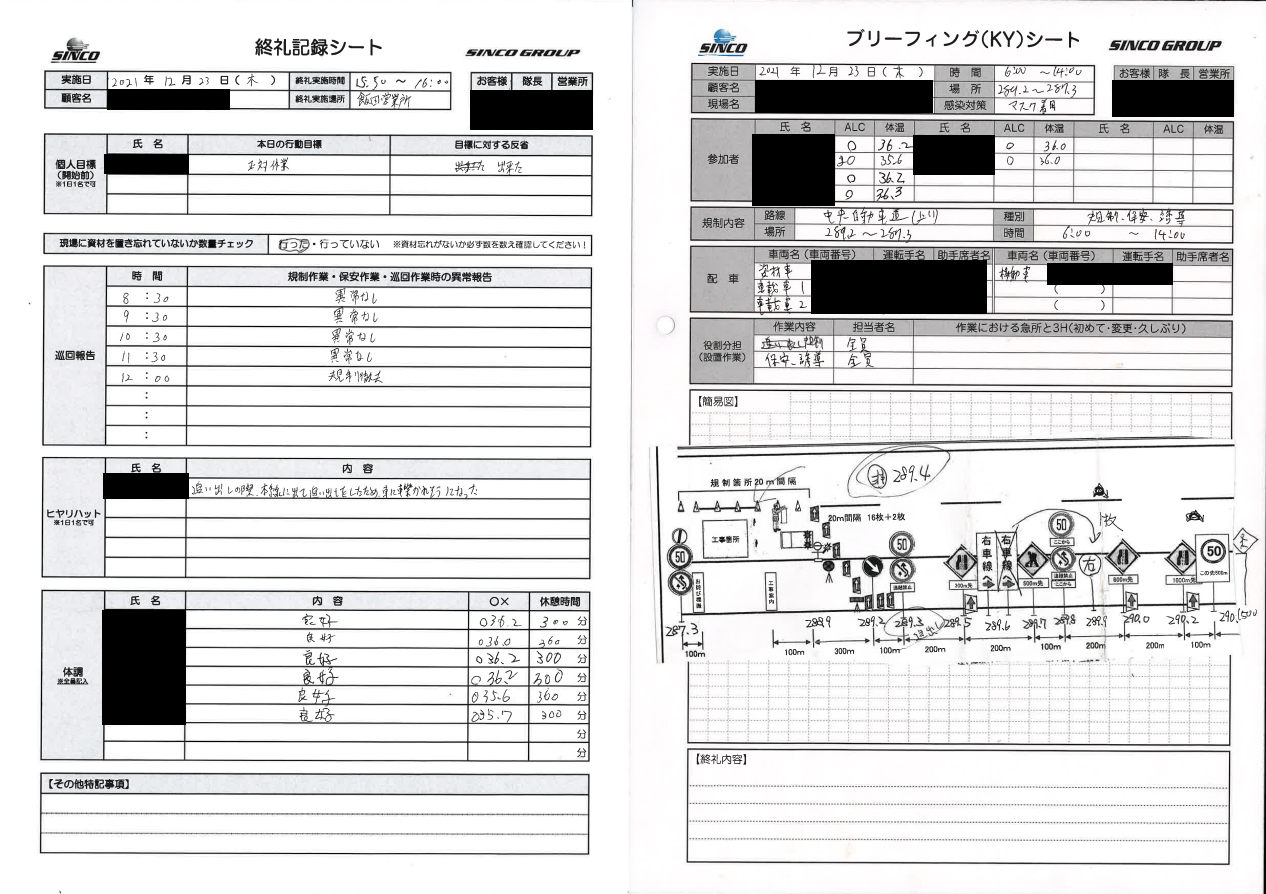 SINCO
終礼記録シート
SINCO GROUP
実施日 2021年 12月 23日(木) 終礼実施時間 15:50 ~ 16:00
顧客名 終礼実施場所 飯田営業所
お客様 隊長 営業所
個人目標
(開始前)
※1日1名で可
氏名 本日の行動目標 目標に対する反省
正対作業 出来た
現場に資材を置き忘れていないか数量チェック 行った・行っていない ※資材忘れがないか必ず数を数え確認してください!
巡回報告
時間 規制作業・保安作業・巡回作業時の異常報告
8:30 異常なし
9:30 異常なし
10:30 異常なし
11:30 異常なし
12:00 規制撤去
:
:
:
ヒヤリハット
※1日1名で可
氏名 内容
追い出しの際、本線に出て追い出しをしたため、車に轢かれそうになった
体調
※全員記入
氏名 内容 ○× 休憩時間
良好 ○36.2 300分
良好 ○36.0 360分
良好 ○36.2 300分
良好 ○36.2 300分
良好 ○35.6 360分
良好 ○35.7 300分
分
分
【その他特記事項】
SINCO
ブリーフィング(KY)シート
SINCO GROUP
実施日 2021年 12月 23日(木) 時間 6:00 ~14:00
顧客名 場所 289.2~287.3
現場名 感染対策 マスク着用
お客様 隊長 営業所
参加者
氏名 ALC 体温 氏名 ALC 体温 氏名 ALC 体温
0 36.2 0 36.0
0 35.6 0 36.0
0 36.2
0 36.3
規制内容
路線 中央自動車道(上り) 種別 規制、保安、誘導
場所 289.2~287.3 時間 6:00 ~ 14:00
配車
車両名(車両番号) 運転手名 助手席者名 車両名(車両番号) 運転手名 助手席者名
資材車 標識車
車載車1 ( )
車載車2 ( )
役割分担
(設置作業)
作業内容 担当者名 作業における急所と3H(初めて・変更・久しぶり)
全員
保安、誘導 全員
【簡易図】
289.4
規制箇所20m間隔
20m間隔 16枚+2枚
工事箇所
50
お詫び標識
工事案内
50
追越禁止
右車線
右車線
300m先
500m先
50
ここから
追越禁止
ここから
右
1枚
800m先
1000m先
50
この先500m
287.3 288.9 289.2 289.3 289.5 289.6 289.7 289.8 289.9 290.0 290.2 290.500
追出し
100m 100m 300m 100m 200m 100m 200m 200m 100m
【終礼内容】